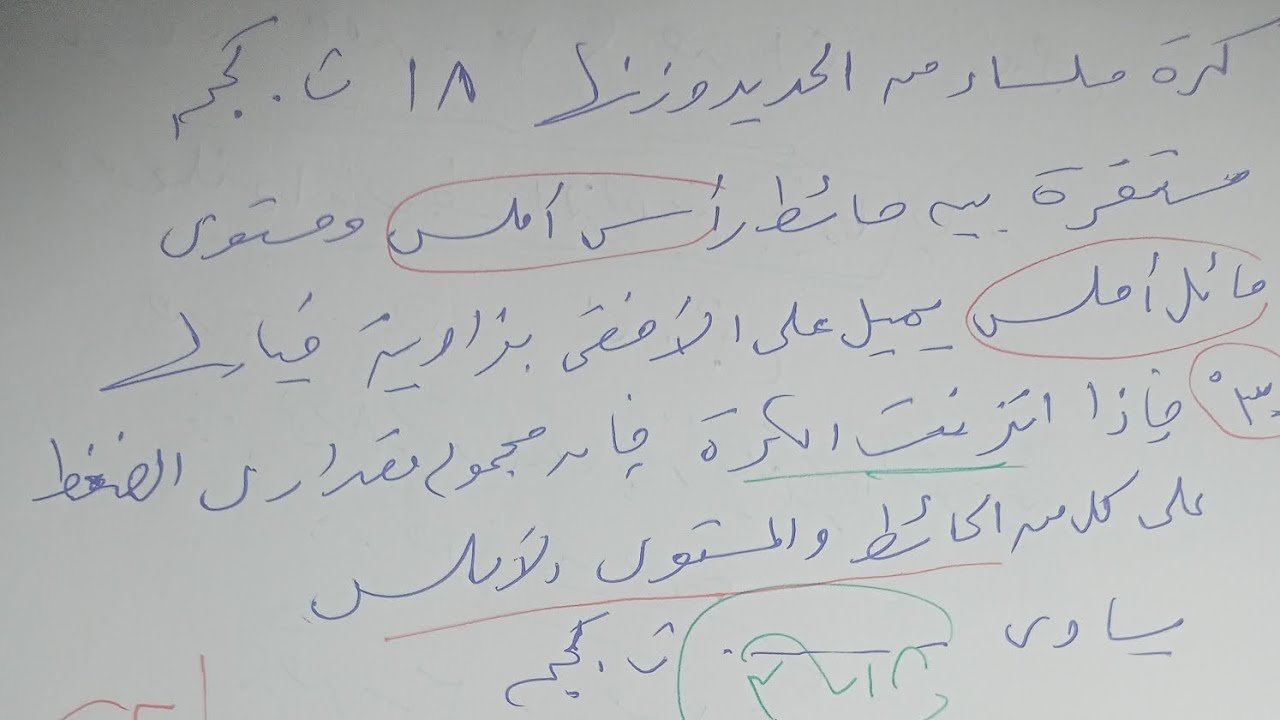 كرة ملساء من الحديد وزنها ١٨ ث. كجم
مستقرة بين حائط رأسى أملس ومستوى
مائل أملس يميل على الأفقى بزاوية قياسها
٣٠° فإذا اتزنت الكرة فإن مجموع مقدارى الضغط
على كل من الحائط والمستوى الأملس
يساوى ث. كجم